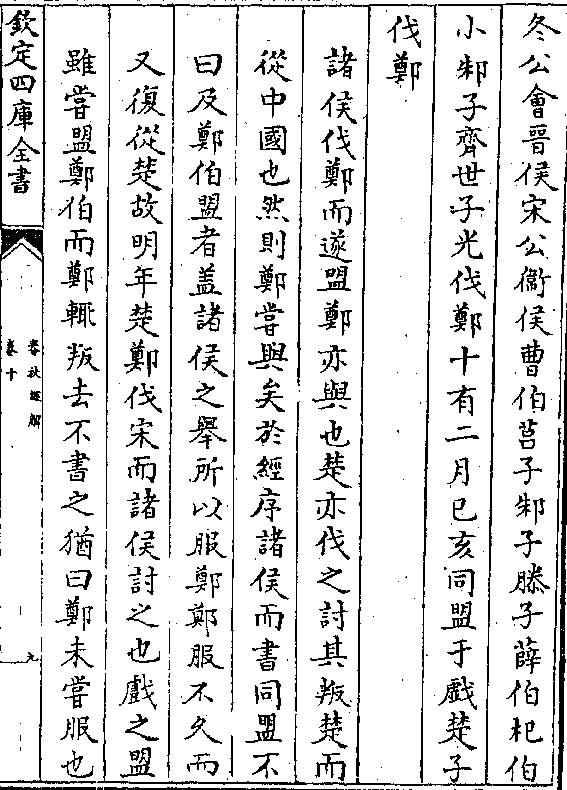 冬公會晉侯宋公衞侯曹伯莒子邾子滕子薛伯杞伯
小邾子齊世子光伐鄭十有二月已亥同盟于戲楚子
伐鄭
諸侯伐鄭而遂盟鄭亦與也楚亦伐之討其叛楚而
從中國也然則鄭嘗與矣於經序諸侯而書同盟不
曰及鄭伯盟者盖諸侯之舉所以服鄭鄭服不久而
又復從楚故明年楚鄭伐宋而諸侯討之也戲之盟
雖嘗盟鄭伯而鄭輙叛去不書之猶曰鄭未嘗服也
欽定四庫全書
春秋經解
卷十
九